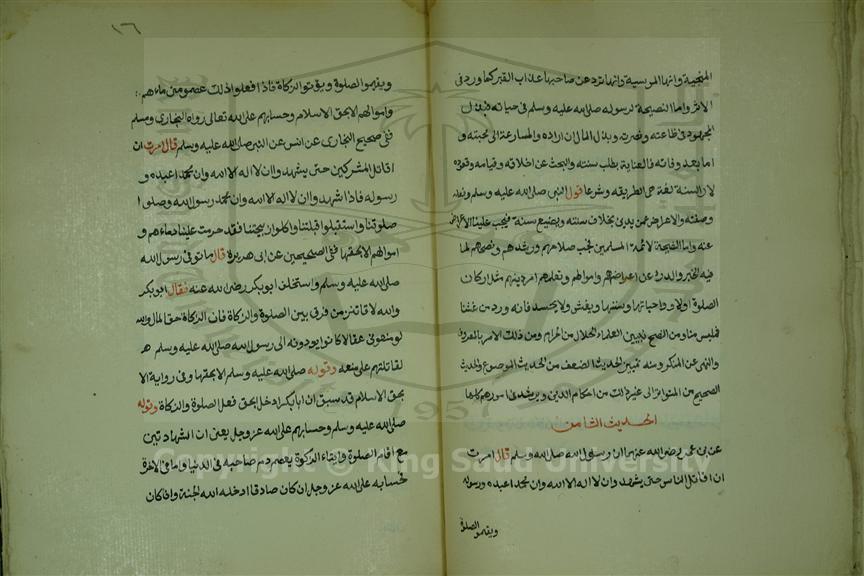 المنجية وانها المونسية وانها ترد عن صاحبها عذاب القبر كما ورد في
الاثر واما النصيحة لرسوله صلى الله عليه وسلم في حياته فبذل
المجهود في طاعته ونصرته وبذل المال ان اراده والمسارعة الى محبته و
اما بعد وفاته فالعناية بطلب سنته والبحث عن اخلاقه وقيامه وقعوده
لان السنة لغة هي الطريقه وشرعا قول النبي صلى الله عليه وسلم وفعله
وصفته والاعراض عمن يدين بخلاف سنته ويضيع سنة فيجب علينا الاعراض
عنه واما النصيحة لائمة المسلمين فيجب صلاحهم ورشدهم ونصحهم لما
فيه الخير والدرء عن اعراضهم واموالهم وتعلمهم امر دينهم مثل اركان
الصلوة اولا و واجباتها وسننها ويغش ولا يحسد فانه ورد من غشنا
فليس منا ومن النصح تبيين العلماء الحلال من الحرام ومن ذلك الامر بالمعروف
والنهى عن المنكر ومنه تمييز الحديث الضعف من الحديث الموضوع والحديث
الصحيح من المتواتر الى غير ذالك من احكام الدين ويرشد في امورهم كلها
الحديث الثامن
عن بن عمر رضى الله عنهم ان رسول الله صلى الله وسلم قال امرت
ان اقاتل الناس حتى يشهد وان لا اله الا الله وان محمدا عبده ورسوله
ويقيمو الصلوة
١٦
ويقيموا الصلوة ويؤتوا الزكاة فاذا فعلوا ذلك عصمو مني دماءهم
واموالهم الا بحق الاسلام وحسابهم على الله تعالى رواه البخارى ومسلم
ففي صحيح البخارى عن انس عن النبى صلى الله عليه وسلم قال امرت ان
اقاتل المشركين حتى يشهد وان لا اله الا الله وان محمد اعبده و
رسوله فاذا شهد وان لا اله الا الله وان محمد رسول الله وصلوا
صلوتنا واستقبلوا قبلتنا واكلوا ذبيحتنا فقد حرمت علينا دماءهم و
اموالهم الا بحقها ففى الصحيحين عن ابى هريرة قال ما توفى رسول الله
صلى الله عليه وسلم واستخلف ابو بكر رضى الله عنه فقال ابو بكر
والله لاقاتلن من فرق بين الصلوة والزكاة فان الزكاة حق المال والله
لو منعونى عقالا كانوا يودونه الى رسول الله صلى الله عليه وسلم
لقاتلتهم على منعه وقوله صلى الله عليه وسلم الا بحقها وفى رواية الا
بحق الاسلام قد سبق ان ابا بكر ادخل بحق فعل الصلوة والزكاة وقوله
صلى الله عليه وسلم وحسابهم على الله عز وجل يعنى ان الشهادتين
مع اقام الصلوة وايتاء الزكوة يعصم دم صاحبه فى الدنيا واما فى الاخرة
فحسابه على الله عز وجل ان كان صادقا ادخله الله الجنة وان كان
1957
Copyright © King Saud University